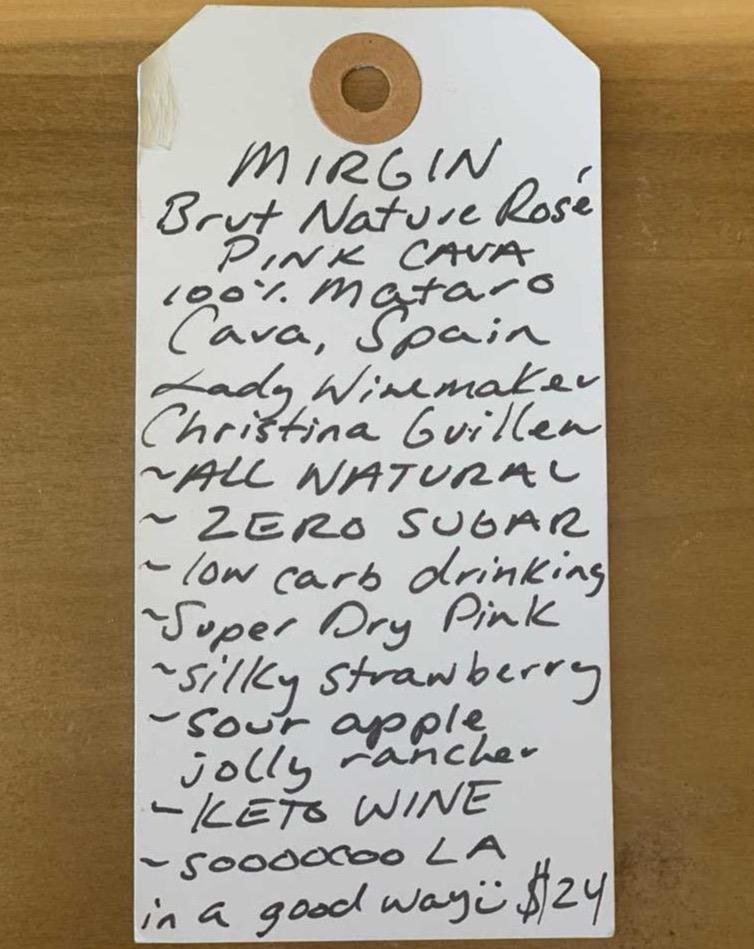 MIRGIN
Brut Nature Rosé
PINK CAVA
100% Mataro
Cava, Spain
Lady Winemaker
Christina Guillen
~ALL NATURAL
~ ZERO SUGAR
~low carb drinking
~Super Dry Pink
~silky strawberry
~sour apple
jolly rancher
~KETO WINE
~soooooooo LA
in a good way :) $24